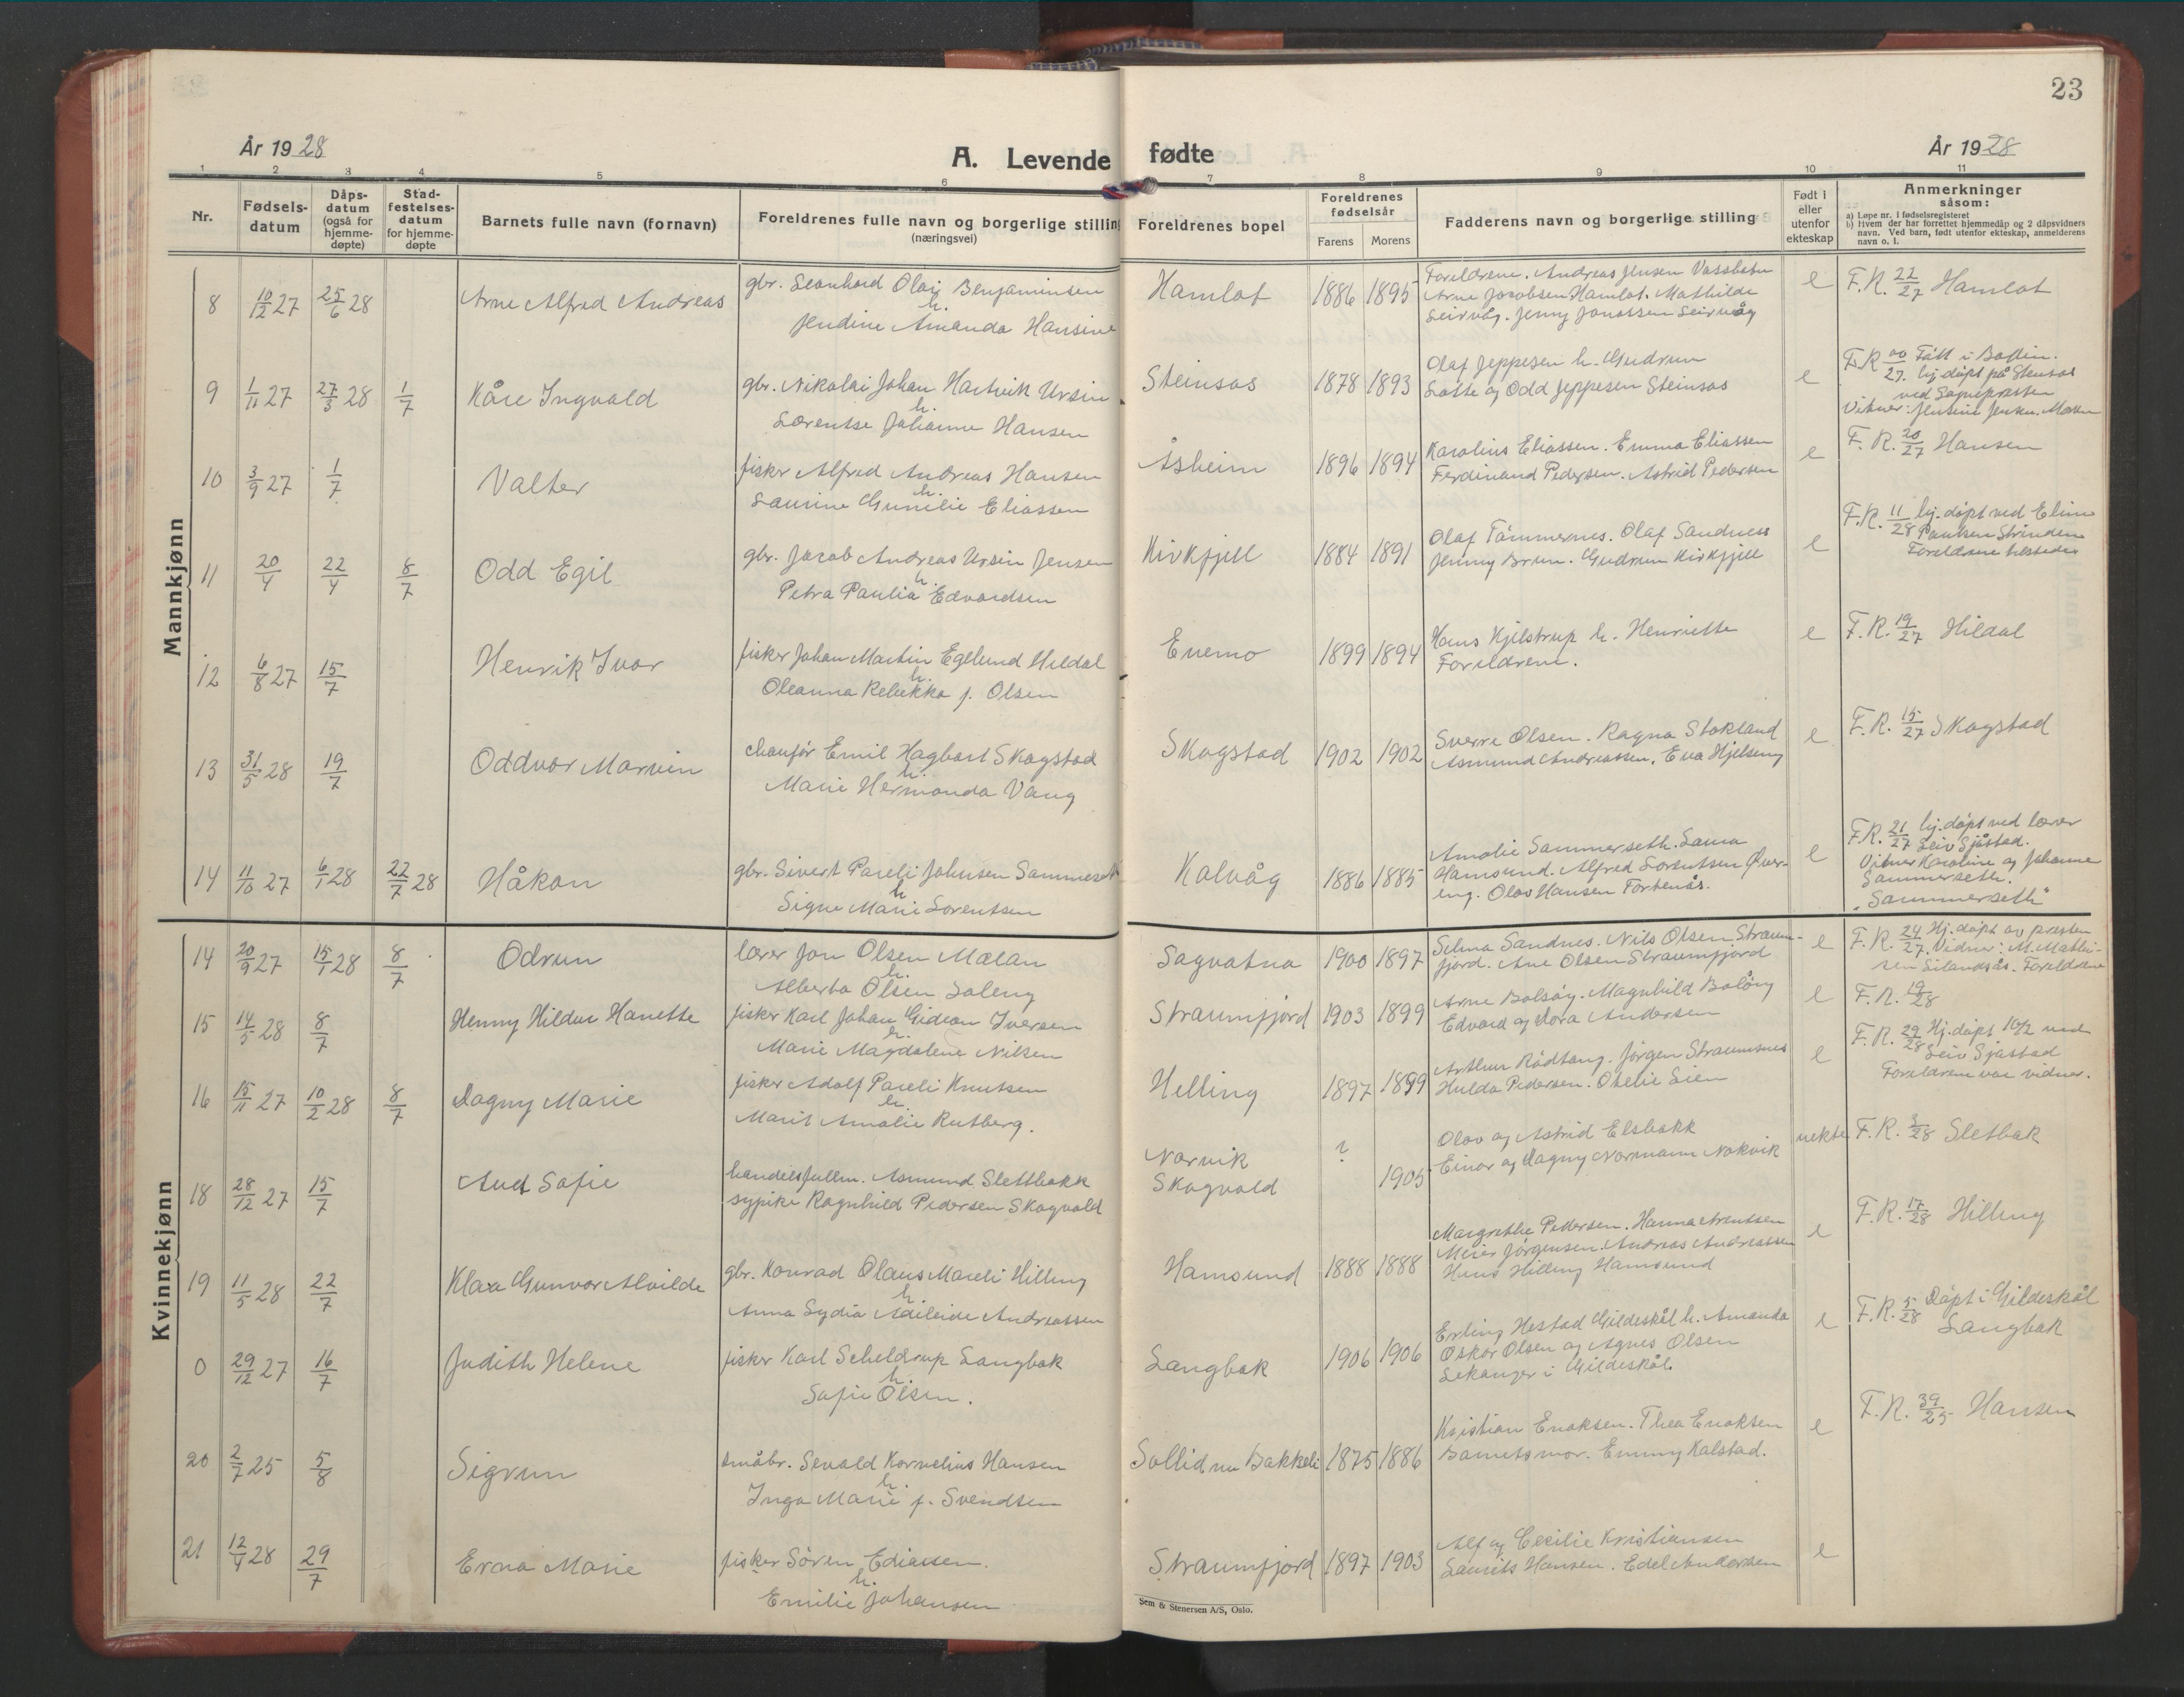 23
År 1928
A. Levende fødte
År 1928
1 2 3 4 5 6 7 8 9 10 11
Nr.
Fødsels-datum
Dåps-datum (også for hjemme-døpte)
Stad-festelses-datum for hjemme-døpte
Barnets fulle navn (fornavn)
Foreldrenes fulle navn og borgerlige stilling (næringsvei)
Foreldrenes bopel
Foreldrenes fødselsår
Farens
Morens
Fadderens navn og borgerlige stilling
Født i eller utenfor ekteskap
Anmerkninger såsom:
a) Løpe nr. i fødselsregisteret
b) Hvem der har forrettet hjemmedåp og 2 dåpsvidners navn. Ved barn, født utenfor ekteskap, anmelderens navn o. l.
Mannkjønn
8 10/12 27 25/6 28 Arne Alfred Andreas
gbr. Leonhard Olai Benjaminsen
h.
Jendine Amanda Hansine
Hamlot 1886 1895
Foreldrene. Andreas Jensen Vassbotn
Arne Jacobsen Hamlot. Mathilde
Leirvåg. Jenny Jonassen Leirvåg
e F.R. 22/27 Hamlot
9 1/11 27 27/3 28 1/7 Kåre Ingvald
gbr. Nikolai Johan Hartvik Ursin
h.
Lorentse Johanne Hansen
Steinsos 1878 1893
Olaf Jeppesen h. Gudrun
Lotte og Odd Jeppesen Steinsos
e F.R. 27. hj. døpt på Steinsos
ved Sognepresten
Vitner: Jensine Jensen.
10 3/9 27 1/7 Valter
fisker Alfred Andreas Hansen
h.
Laurine Gunelie Eliassen
Åsheim 1896 1894
Karolius Eliassen. Emma Eliassen
Ferdinand Pedersen. Astrid Pedersen
e F.R. 20/27 Hansen
11 20/4 22/4 8/7 Odd Egil
gbr. Jacob Andreas Ursin Jensen
h.
Petra Paulia Edvardsen
Kirkfjell 1884 1891
Olaf Tømmernes. Olaf Sandnes
Jenny Brun. Gudrun Kirkfjell
e F.R. 11/28 hj. døpt ved Eline
Paulsen Stranden
Foreldrene tilstede
12 6/8 27 15/7 Henrik Ivar
fisker Johan Martin Egelund Hildal
h.
Oleanna Rebekka f. Olsen
Enemo 1899 1894
Hans Kjelstrup h. Henriette
Foreldrene.
e F.R. 19/27 Hildal
13 31/5 28 19/7 Oddvar Marvin
chaufør Emil Hagbart Skogstad
h.
Marie Hermanda Vang
Skogstad 1902 1902
Sverre Olsen. Ragna Stokland
Asmund Andreassen. Eva Hjelseng
e F.R. 15/27 Skogstad
14 11/10 27 6/1 28 22/7 28 Håkon
gbr. Sivert Pareli Johnsen Sammerseth
h
Signe Marie Lorentsen
Kalvåg 1886 1885
Amalie Sammerseth. Lama
Hamsund. Alfred Lorentsen Øver-
eng. Olav Hansen Fortenås.
e F.R. 21/27 hj. døpt ved lærer
Leiv Sjåstad.
Vitner Karoline og Johanne
Sammerseth.
"Sammerseth"
Kvinnekjønn
14 20/9 27 15/1 28 8/7 Odrun
lærer Jon Olsen Mælan
h.
Alberta Olsen Løleng
Sagvatna 1900 1897
Selma Sandnes. Nils Olsen Straum-
fjord. Ane Olsen Straumfjord
e F.R. 24/27. Hj. døpt av presten
Vidner: M. Mathi-
sen Silandsås. Foreldrene
15 14/5 28 8/7 Henny Hildur Hanette
fisker Karl Johan Gideon Iversen
h.
Marie Magdalene Nilsen
Straumfjord 1903 1899
Arne Bolsøy. Magnhild Bolöy
Edvard og Nora Andersen
e F.R. 19/28
16 15/11 27 10/2 28 8/7 Dagny Marie
fisker Adolf Pareli Knutsen
h.
Marit Amalie Rutberg.
Helling 1897 1899
Arthur Rødtang. Jørgen Straumsnes
Hulda Pedersen. Othelie Lien
e F.R. 29/28 Hj. døpt 10/2 ved
Leiv Sjåstad
Foreldrene var vidner.
18 28/12 27 15/7 Aud Sofie
handelsfullm. Asmund Slettbakk
sypike Ragnhild Pedersen Skogvold
Narvik
Skogvold ? 1905
Olav og Astrid Elsbakk
Einar og Dagny Normann Nokvik
uekte F.R. 3/28 Sletbak
19 11/5 28 22/7 Klara Gunvor Alvilde
gbr. Konrad Olaus Mareli Hilling
h.
Anna Lydia Adileide Andreassen
Hamsund 1888 1888
Margrethe Pedersen. Hanna Arentsen
Meier Jørgensen. Andreas Andreassen
Hilling Hamsund
e F.R. 17/28 Hilling
0 29/12 27 16/7 Judith Helene
fisker Karl Scheldrup Langbak
h.
Sofie Olsen.
Langbak 1906 1906
Erling Hestad Gildeskål h. Amanda
Oskar Olsen og Agnes Olsen
Lekanger i Gildeskål
e F.R. 5/28 Døpt i Gildeskål
Langbak
20 2/7 25 5/8 Sigrun
småbr. Sevald Kornelius Hansen
h.
Inga Marie f. Svendsen
Sollid nu Bakkeli 1875 1886
Kristian Enoksen. Thea Enoksen
Barnets mor. Emmy Kalstad.
e F.R. 39/25 Hansen
21 12/4 28 29/7 Erna Marie
fisker Søren Ediassen.
h.
Emilie Johansen
Straumfjord 1897 1903
Alf og Cecilie Kristiansen
Laurits Hansen. Edel Andersen
e
Sem & Stenersen A/S, Oslo.